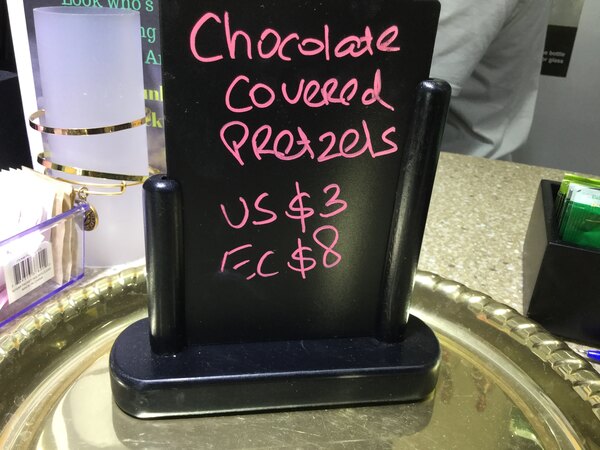 Look who's
Chocolate
Covered
Pretzels
US $3
EC $8